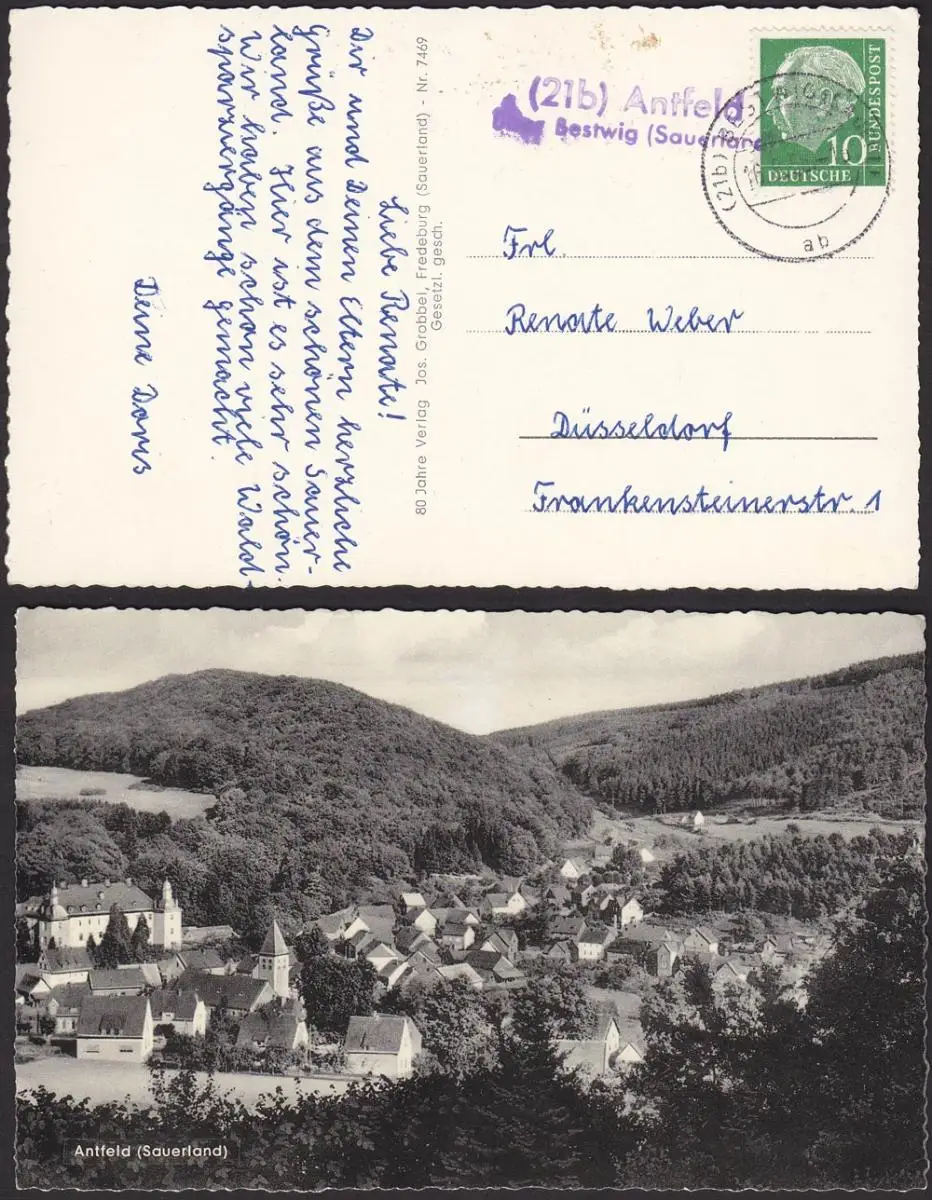 Liebe Renate!
Dir und Deinen Eltern herzliche
Grüße aus dem schönen Sauer-
land. Hier ist es sehr schön.
Wir haben schon viele Wald-
spaziergänge gemacht.
Deine Doris
80 Jahre Verlag Jos. Grobbel, Fredeburg (Sauerland) - Nr. 7469
Gesetzl. gesch.
(21b) Antfeld
Bestwig (Sauerland
10
DEUTSCHE
BUNDESPOST
(21b) BESTWIG
ab
Frl.
Renate Weber
Düsseldorf
Frankensteinerstr. 1
Antfeld (Sauerland)